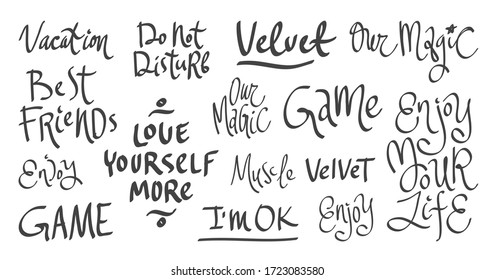 Vacation
Do Not
Disturb
Velvet
Our Magic
Best
Friends
Love
Yourself
More
Our
Magic
Game
Enjoy
Your
Life
Enjoy
GAME
Muscle
Velvet
I'm OK
Enjoy
shutterstock.com · 1723083580